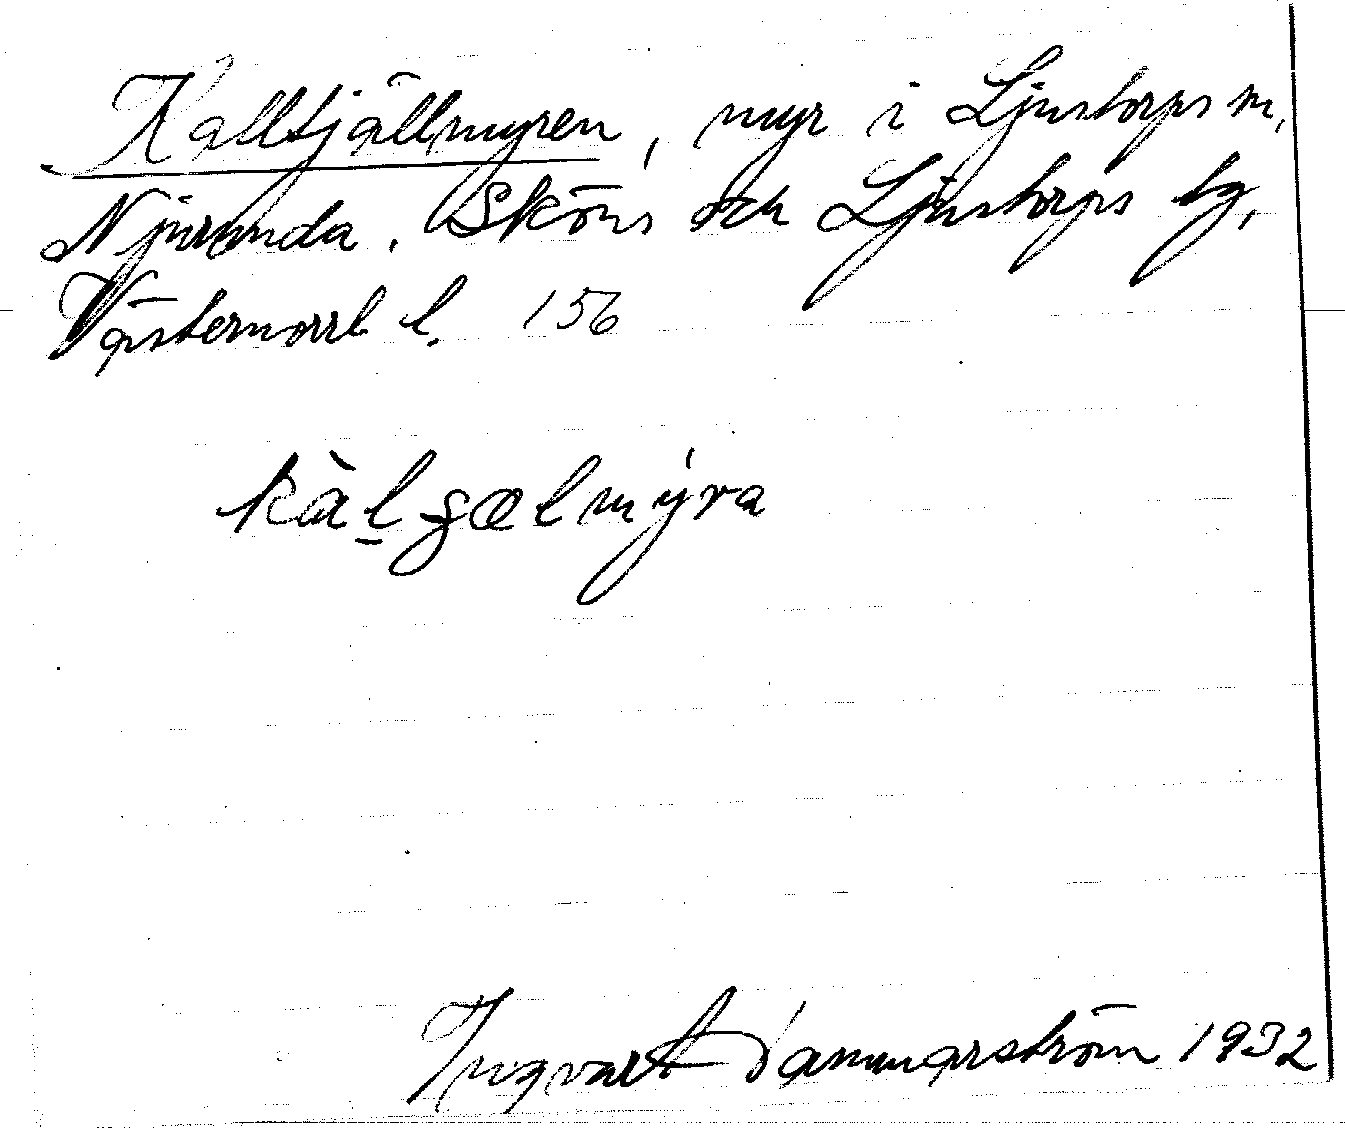 Kalltjällmyren, myr i Ljustorps sn,
Njurunda, Sköns och Ljustorps tg,
Västernorrl l. 156
kàl̲gælmýra
Ingvar Dammarström 1932